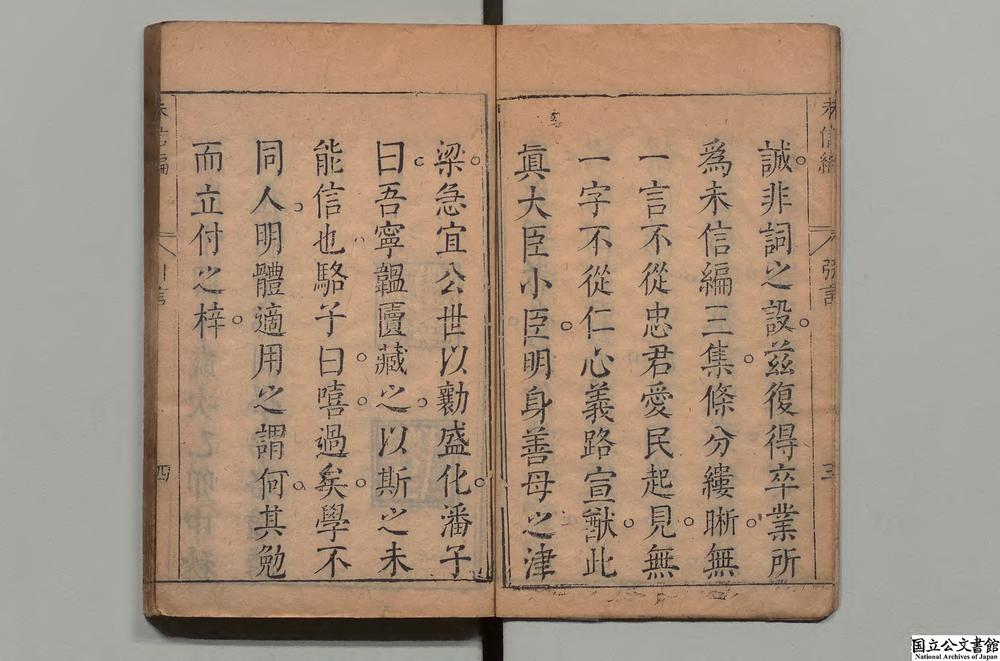 未信編
張言
三
誠非詞之設茲復得卒業所
爲未信編三集條分縷晰無
一言不從忠君愛民起見無
一字不從仁心義路宣猷此
眞大臣小臣明身善母之津
梁急宜公世以勷盛化潘子
曰吾寧韞匵藏之以斯之未
能信也駱子曰嘻過矣學不
同人明體適用之謂何其勉
而立付之梓
未信編
四
国立公文書館
National Archives of Japan